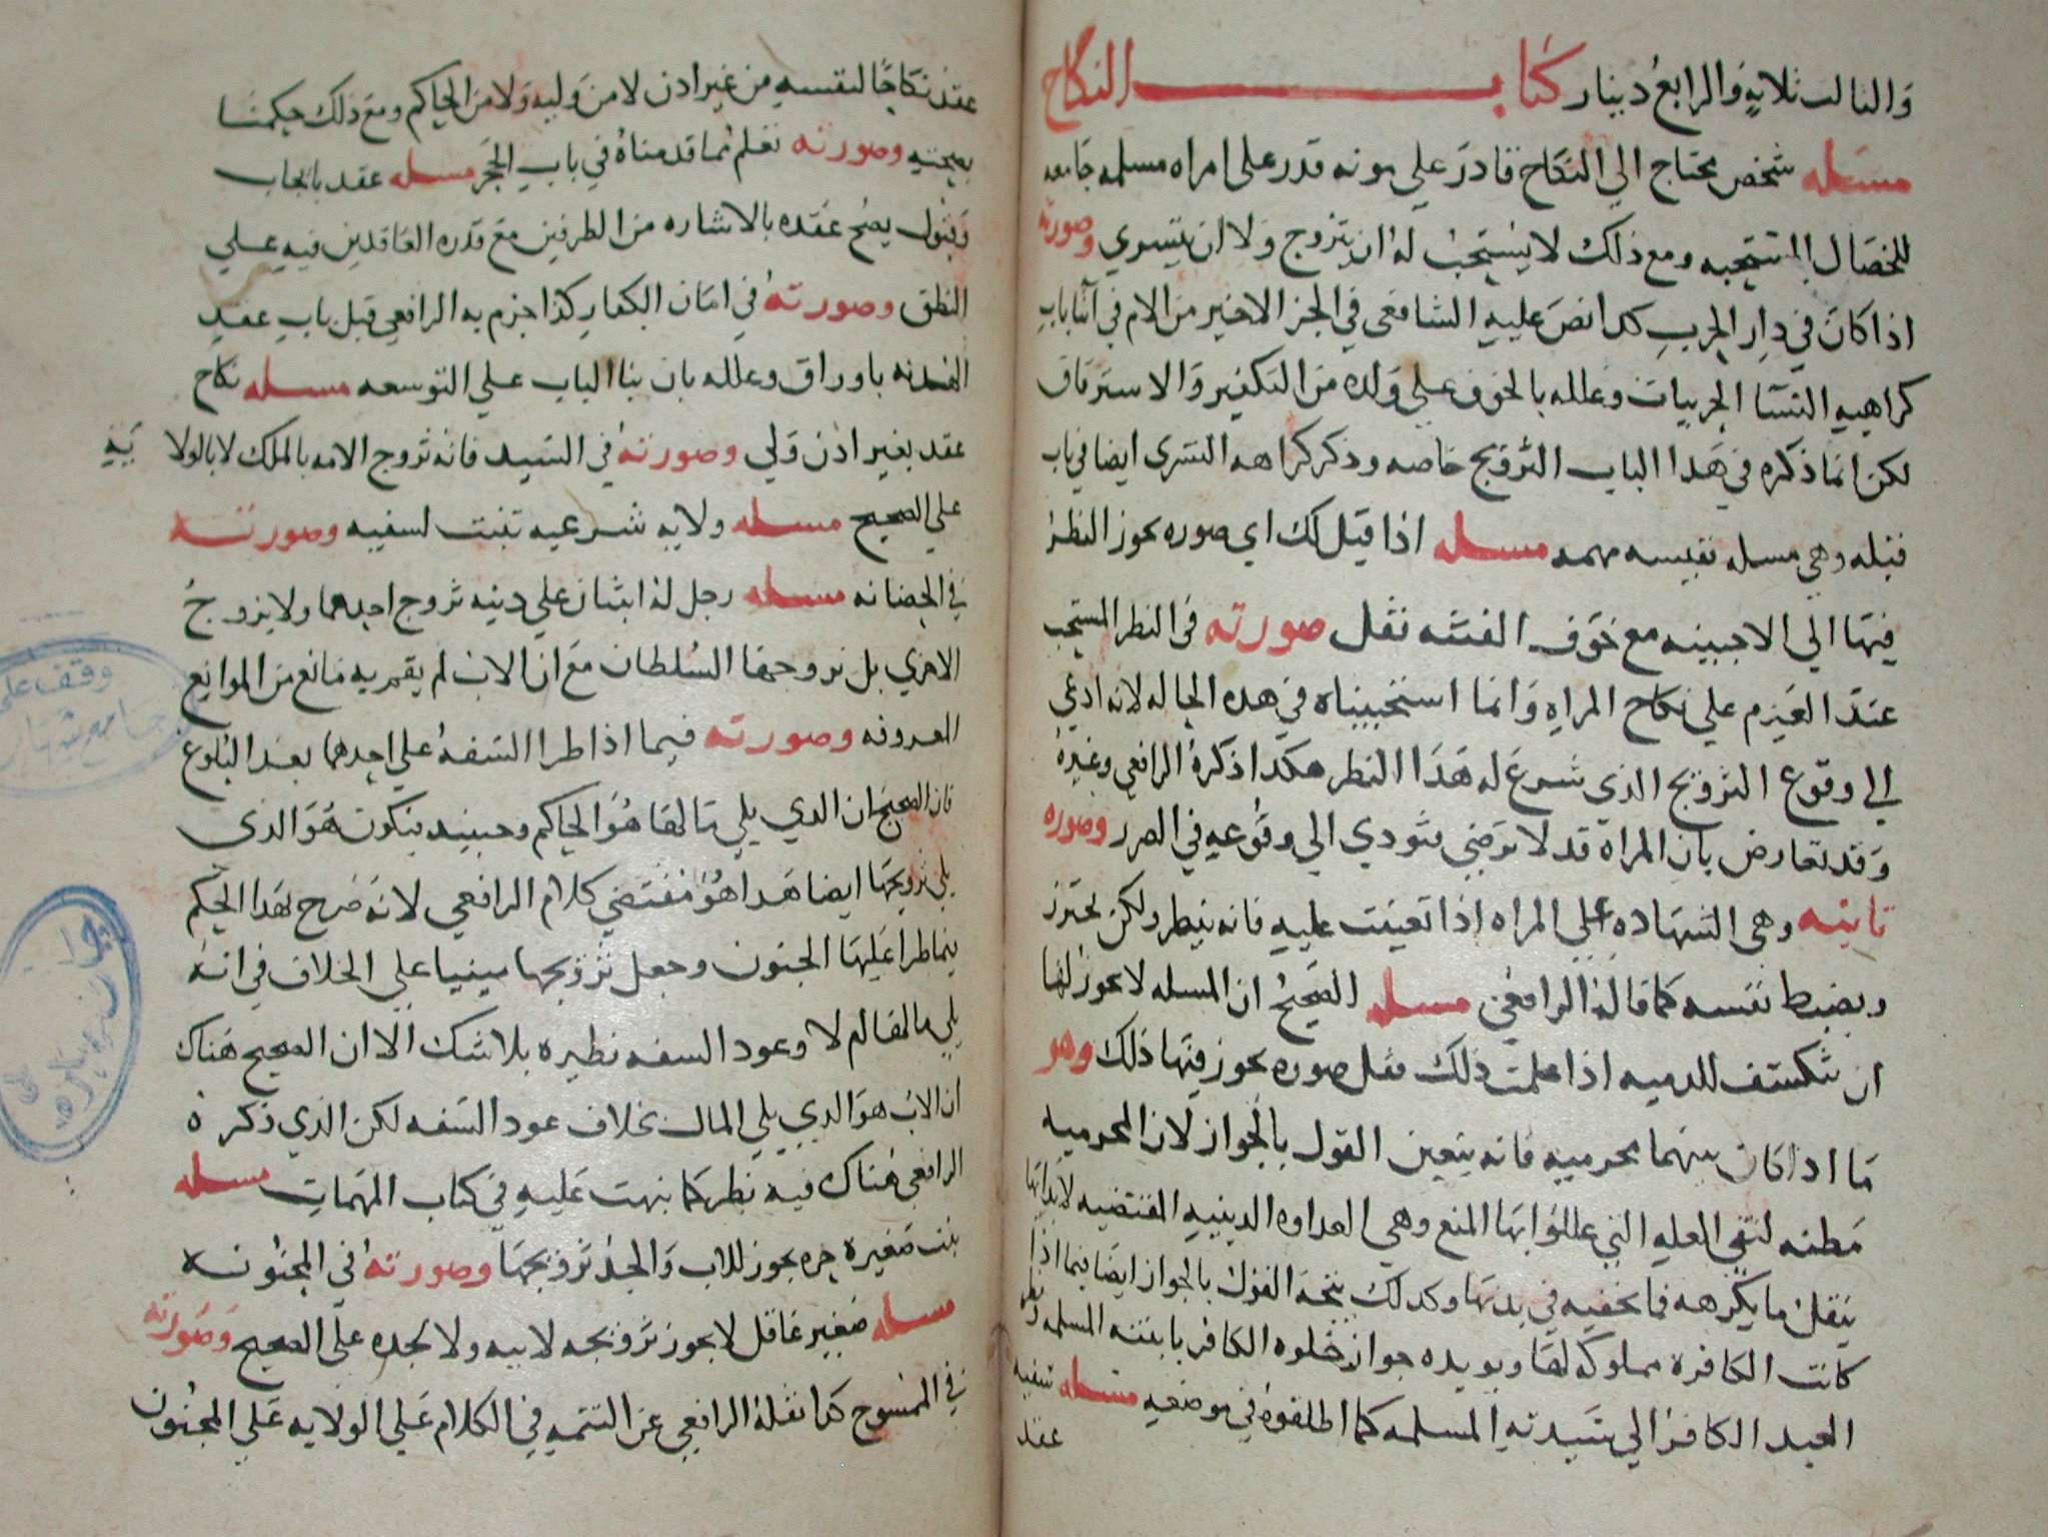 والثالث ثلاثة والرابع دينار كتاب النكاح
مسله شخص محتاج الي النكاح قادر علي مونه قدر علي امراه مسلمه جامعه
للخصال المستحبه ومع ذلك لا يستحب له ان يتزوج ولا ان يتسري وصورته
اذا كان في دار الحرب كدا نص عليه الشافعي في الجز الاخير من الام في اثنا باب
كراهيه النسا الحربيات وعلله بالخوف علي ولده من التكفير والاسترقاق
لكن انما ذكره في هدا الباب التزويج خاصه وذكر كراهه التسري ايضا في باب
قبله وهي مسله نفيسه مهمه مسله اذا قيل لك اي صوره يجوز النظر
فيها الي الاجنبيه مع خوف الفتنه فقل صورته في النظر المستحب
عند العزم علي نكاح المراه وانما استحببناه في هده الحاله لانه ادعي
الي وقوع التزويج الذي شرع له هذا النظر هكدا ذكره الرافعي وغيره
وقد تعارض بان المراه قد لا ترضي فتودي الي وقوعه في الضرر وصوره
ثانيه وهي الشهاده علي المراه اذا تعينت عليه فانه ينظر ولكن يحترز
ويضبط نفسه كما قاله الرافعي مسله الصحيح ان المسله لا يجوز لها
ان تكشف للدميه اذا علمت ذلك فقل صوره يجوز فيها ذلك وهو
ما اذا كان بينهما محرميه فانه يتعين القول بالجواز لان المحرميه
مظنه لنفي العله التي عللوا بها المنع وهي العداوه الدينيه المقتضيه لابدايها
ينقل ما يكرهه فما تخفيه في بدنها وكدلك يتجه القول بالجواز ايضا فيما اذا
كانت الكافرة مملوكه لها ويويده جواز خلوه الكافر بابنته المسلمه ونظر
العبد الكافر الي سيدته المسلمه كما اطلقوه في موضعه مسله سفيه
عقد
عقد نكاحا لنفسه من غير ادن لا من وليه ولا من الحاكم ومع ذلك حكمنا
بصحته وصورته تعلم مما قدمناه في باب الحجر مسله عقد بايجاب
وقبول يصح عقده بالاشاره من الطرفين مع قدره العاقدين فيه علي
النطق وصورته في امان الكفار كذا جزم به الرافعي قبل باب عقد
الهدنه باوراق وعلله بان بنا الباب علي التوسعه مسله نكاح
عقد بغير اذن ولي وصورته في السيد فانه تزوج الامه بالملك لا بالولايه
علي الصحيح مسله ولايه شرعيه تثبت لسفيه وصورتـه
في الحضانه مسله رجل له ابنتان علي دينه تزوج احدهما ولا يزوج
الاخري بل تزوجها السلطان مع ان الاب لم يقم به مانع من الموانع
المعروفه وصورته فيما اذا طرا السفه علي احدهما بعد البلوغ
فان الصحيح ان الدي يلي مالها هو الحاكم وحينيد فيكون هو الذي
يلي تزويجها ايضا هدا هو مقتضي كلام الرافعي لانه صرح بهدا الحكم
فيما طرا عليها الجنون وجعل تزويجها مبنيا علي الخلاف في انه
يلي مالها ام لا وعود السفه نظيره بلا شك الا ان الصحيح هناك
ان الاب هو الدي يلي المال بخلاف عود السفه لكن الذي ذكره
الرافعي هناك فيه نظر كما نبهت عليه في كتاب المهمات مسله
بنت صغيرة حره يجوز للاب والجد تزويجها وصورته في المجنونه
مسله صغير عاقل لا يجوز تزويجه لابيه ولا لجده علي الصحيح وصورته
في الممسوح كدا نقله الرافعي عن التتمه في الكلام علي الولايه علي المجنون
وقف علي